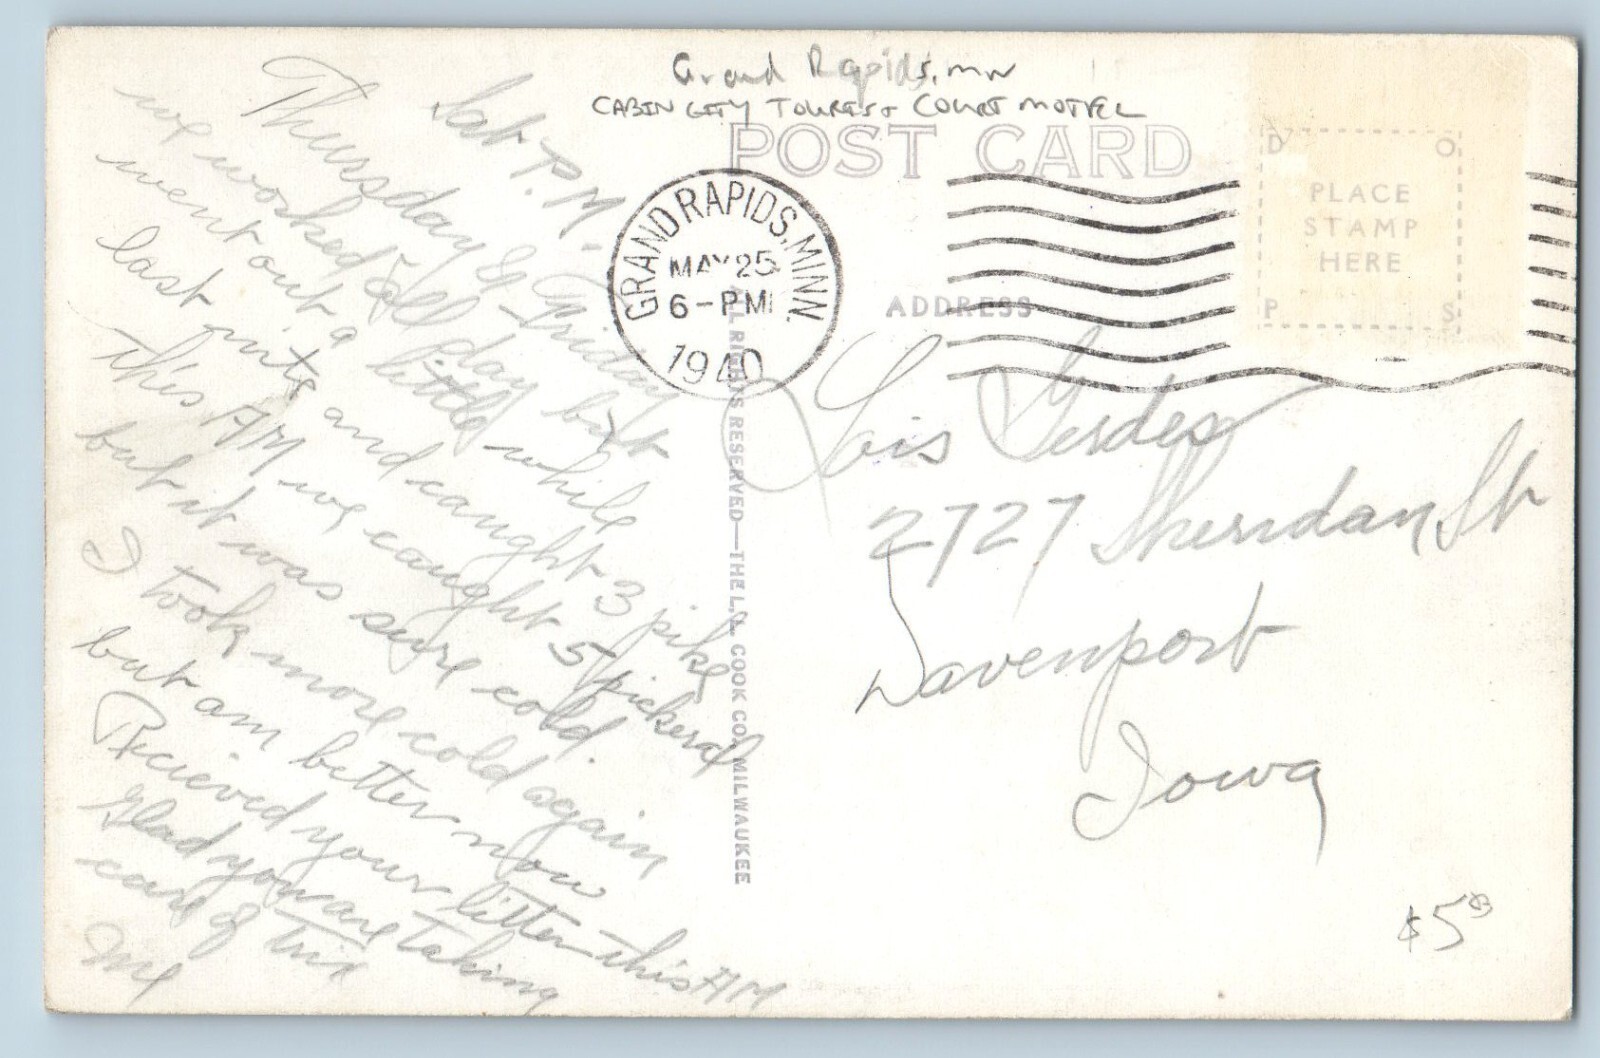 Grand Rapids, MN
CABIN CITY TOURIST COURT MOTEL
POST CARD
D O
PLACE
STAMP
HERE
P S
GRAND RAPIDS, MINN.
MAY 25
6-PM
1940
ADDRESS
ALL RIGHTS RESERVED—THE L.L. COOK CO., MILWAUKEE
Sat P.M.
Thursday & Friday
we worked all day but
went out a little while
last nite and caught 3 pike
this AM we caught 5 pickeral
but it was sure cold.
I took more cold again
but am better now
Recieved your letter this AM
Glad you are taking
care of Trix
Me
Lois Gerdes
2727 Sheridan St
Davenport
Iowa
$5.00